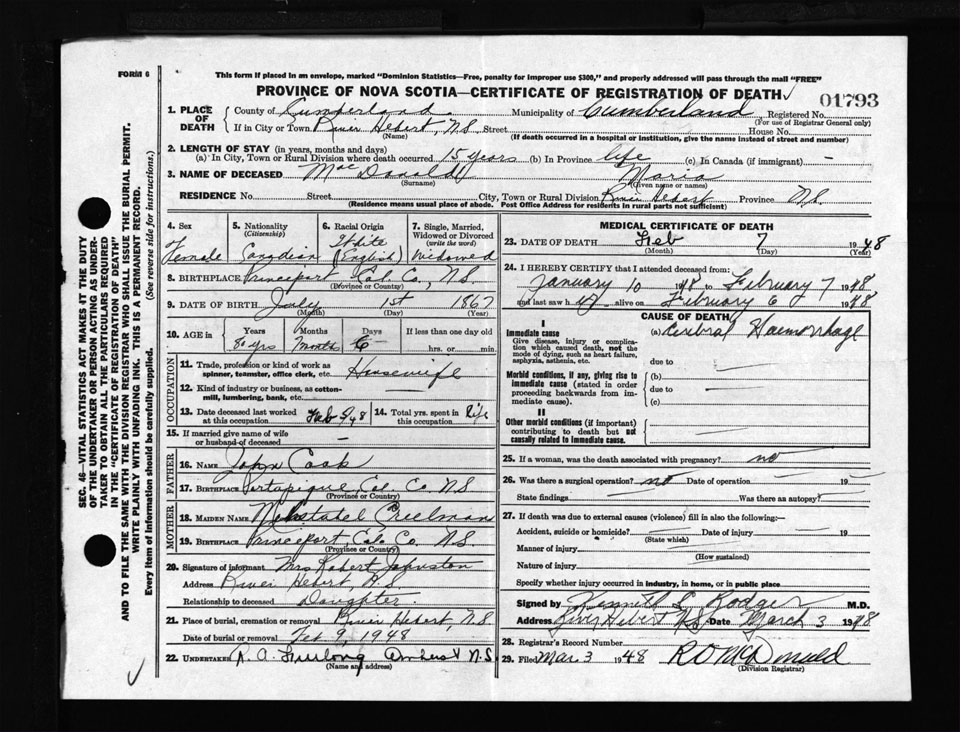 FORM 6
This form if placed in an envelope, marked "Dominion Statistics—Free, penalty for improper use $300," and properly addressed will pass through the mail "FREE"
PROVINCE OF NOVA SCOTIA—CERTIFICATE OF REGISTRATION OF DEATH
01793
1. PLACE OF DEATH County of Cumberland Municipality of Cumberland Registered No.
(For use of Registrar General only)
If in City or Town River Hebert, N.S. Street House No.
(Name) (If death occurred in a hospital or institution, give the name instead of street and number)
2. LENGTH OF STAY (in years, months and days)
(a) In City, Town or Rural Division where death occurred 15 years (b) In Province life (c) In Canada (if immigrant) —
3. NAME OF DECEASED MacDonald Maria
(Surname) (Given name or names)
RESIDENCE No. Street City, Town or Rural Division River Hebert Province N.S.
(Residence means usual place of abode. Post Office Address for residents in rural parts not sufficient)
4. Sex 5. Nationality (Citizenship) 6. Racial Origin 7. Single, Married, Widowed or Divorced (write the word)
Female Canadian White (English) Widowed
8. BIRTHPLACE Princeport Col. Co., N.S.
(Province or Country)
9. DATE OF BIRTH July 1st 1867
(Month) (Day) (Year)
10. AGE in Years Months Days If less than one day old
80 yrs months 6 hrs. or min.
OCCUPATION
11. Trade, profession or kind of work as spinner, teamster, office clerk, etc. Housewife
12. Kind of industry or business, as cotton-mill, lumbering, bank, etc.
13. Date deceased last worked at this occupation Feb 5/48 14. Total yrs. spent in this occupation Life
15. If married give name of wife or husband of deceased —
FATHER
16. NAME John Cook
17. BIRTHPLACE Portapique, Col. Co. N.S.
(Province or Country)
MOTHER
18. MAIDEN NAME Creelman
19. BIRTHPLACE Princeport, Col. Co. N.S.
(Province or Country)
20. Signature of informant Mrs Robert Johnston
Address River Hebert, N.S.
Relationship to deceased Daughter.
21. Place of burial, cremation or removal River Hebert, N.S.
Date of burial or removal Feb 9, 1948
22. UNDERTAKER R. A. Furlong Amherst N.S.
(Name and address)
MEDICAL CERTIFICATE OF DEATH
23. DATE OF DEATH Feb 7 1948
(Month) (Day) (Year)
24. I HEREBY CERTIFY that I attended deceased from:
January 10 1948 to February 7 1948
and last saw h alive on February 6 1948
CAUSE OF DEATH
I
Immediate cause (a) Cerebral Haemorrhage
Give disease, injury or complication which caused death, not the mode of dying, such as heart failure, asphyxia, asthenia, etc.
due to
Morbid conditions, if any, giving rise to immediate cause (stated in order proceeding backwards from immediate cause).
(b)
due to
(c)
II
Other morbid conditions (if important) contributing to death but not causally related to immediate cause.
25. If a woman, was the death associated with pregnancy? no
26. Was there a surgical operation? no Date of operation 19
State findings Was there an autopsy?
27. If death was due to external causes (violence) fill in also the following:—
Accident, suicide or homicide? Date of injury 19
(State which)
Manner of injury
(How sustained)
Nature of injury
Specify whether injury occurred in industry, in home, or in public place
Signed by Kenneth L. Rodger M.D.
Address River Hebert N.S. Date March 3 1948
28. Registrar's Record Number
29. Filed Mar. 3 1948 R O McDonald
(Division Registrar)
SEC. 46—VITAL STATISTICS ACT MAKES IT THE DUTY
OF THE UNDERTAKER OR PERSON ACTING AS UNDER-
TAKER TO OBTAIN ALL THE PARTICULARS REQUIRED
IN THE "CERTIFICATE OF REGISTRATION OF DEATH"
AND TO FILE THE SAME WITH THE DIVISION REGISTRAR WHO SHALL ISSUE THE BURIAL PERMIT.
WRITE PLAINLY WITH UNFADING INK. THIS IS A PERMANENT RECORD.
Every item of information should be carefully supplied. (See reverse side for instructions.)